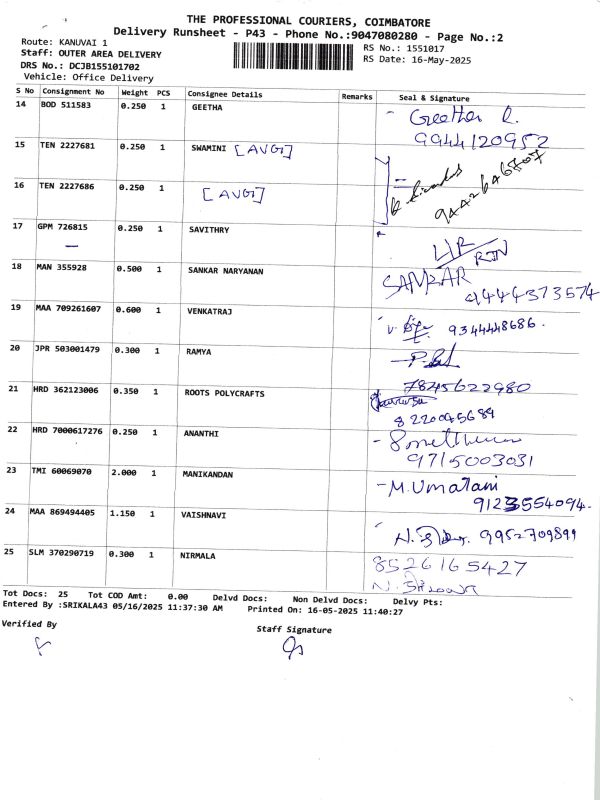 THE PROFESSIONAL COURIERS, COIMBATORE
Delivery Runsheet - P43 - Phone No.:9047080280 - Page No.:2
Route: KANUVAI 1
RS No.: 1551017
Staff: OUTER AREA DELIVERY
RS Date: 16-May-2025
DRS No.: DCJB155101702
Vehicle: Office Delivery
S No Consignment No Weight PCS Consignee Details Remarks Seal & Signature
14 BOD 511583 0.250 1 GEETHA
9944120952
15 TEN 2227681 0.250 1 SWAMINI [AVGI]
16 TEN 2227686 0.250 1 [AVGI]
9442646707
17 GPM 726815 0.250 1 SAVITHRY
18 MAN 355928 0.500 1 SANKAR NARYANAN SANKAR
9444373574
19 MAA 709261607 0.600 1 VENKATRAJ
9344448686.
20 JPR 503001479 0.300 1 RAMYA
7845622980
21 HRD 362123006 0.350 1 ROOTS POLYCRAFTS
22 HRD 7000617276 0.250 1 ANANTHI
9715003031
23 TMI 60069070 2.000 1 MANIKANDAN - M.Umatani
9123554094.
24 MAA 869494405 1.150 1 VAISHNAVI
9952709899
25 SLM 370290719 0.300 1 NIRMALA 8526165427
Tot Docs: 25 Tot COD Amt: 0.00 Delvd Docs: Non Delvd Docs: Delvy Pts:
Entered By :SRIKALA43 05/16/2025 11:37:30 AM Printed On: 16-05-2025 11:40:27
Verified By
Staff Signature